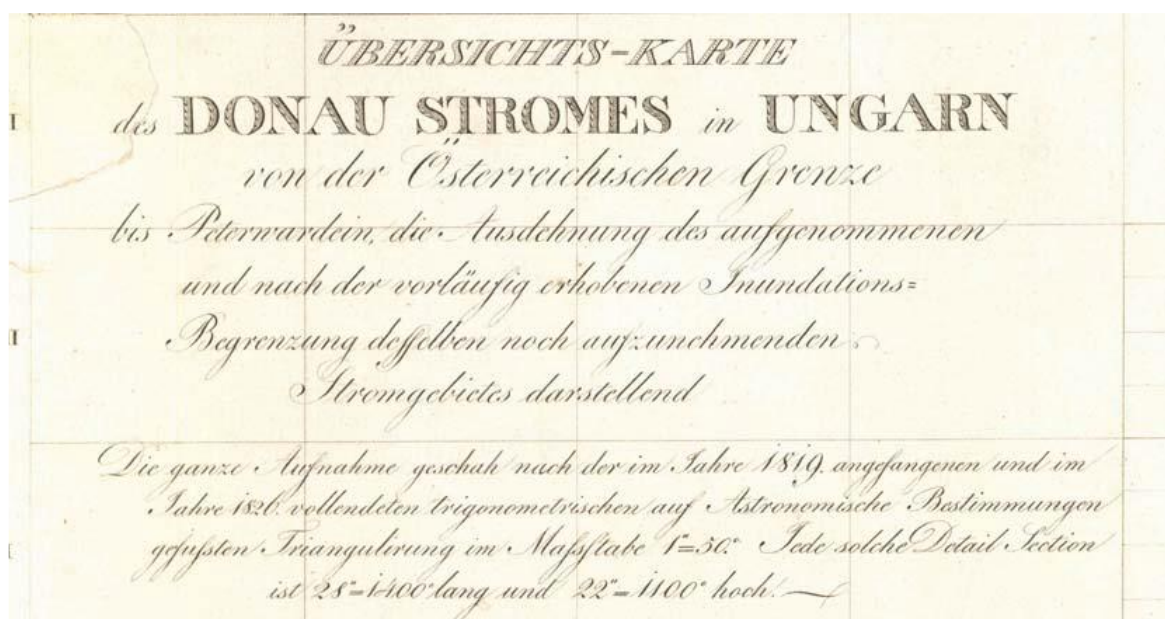 ÜBERSICHTS-KARTE
des DONAU STROMES in UNGARN
von der Österreichischen Grenze
bis Peterwardein, die Ausdehnung des aufgenommenen
und nach der vorläufig erhobenen Inundations=
Begrenzung deſſelben noch aufzunehmenden
Stromgebietes darstellend
Die ganze Aufnahme geschah nach der im Jahre 1819. angefangenen und im
Jahre 1826. vollendeten trigonometrischen auf Astronomische Bestimmungen
gefußten Triangulirung im Maſsſtabe 1"=50.° Jede solche Detail Section
ist 28"=1400° lang und 22"=1100° hoch.
I
II
I